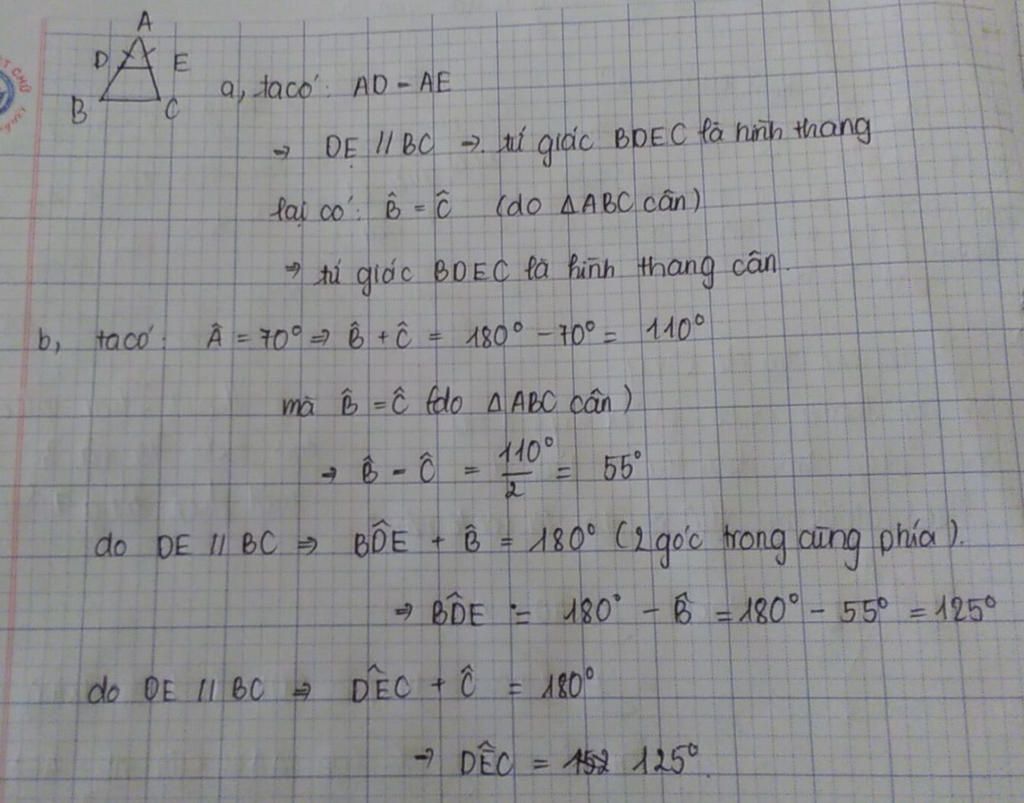 A
D E
B C
a, ta có: AD = AE
→ DE // BC → tứ giác BDEC là hình thang
lại có: B̂ = Ĉ (do △ABC cân)
→ tứ giác BDEC là hình thang cân.
b, ta có: Â = 70° ⇒ B̂ + Ĉ = 180° - 70° = 110°
mà B̂ = Ĉ (do △ABC cân)
→ B̂ = Ĉ = 110°/2 = 55°
do DE // BC ⇒ BD̂E + B̂ = 180° (2 góc trong cùng phía).
⇒ BD̂E = 180° - B̂ = 180° - 55° = 125°
do DE // BC ⇒ DÊC + Ĉ = 180°
→ DÊC = 125°.